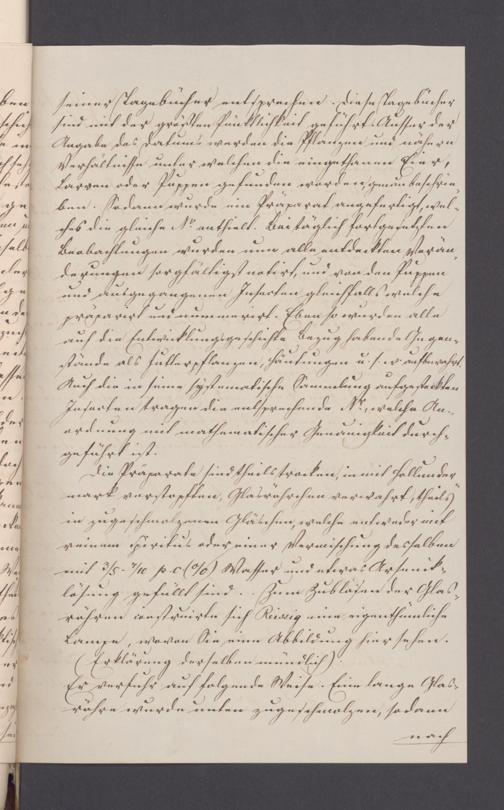 seiner Tagebücher entsprechen. Diese Tagebücher
sind mit der größten Pünktlichkeit geführt. Ausser der
Angabe des Datums werden die Pflanzen und nähern
Verhältnisse unter welchen die eingethanen Eier,
Larven oder Puppen gefunden worden, genau beschrie-
ben. Sodann wurde ein Präparat angefertigt, wel-
ches die gleiche No enthielt. Bei täglich fortgesetzten
Beobachtungen wurden nun alle entdeckten Verän-
derungen sorgfältigst notirt, und von den Puppen
und ausgegangenen Insecten gleichfalls welche
präparirt und nummerirt. Eben so wurden alle
auf die Entwicklungsgeschichte Bezug habende Gegen-
stände als Futterpflanzen, Häutungen u. s. w aufbewahrt.
Auch die in seine systematische Sammlung aufgesteckten
Insecten tragen die entsprechende No, welche An-
ordnung mit mathematischer Genauigkeit durch-
geführt ist.
Die Präparate sind theils trocken, in mit Hollunder
mark verstopften, Glasröhrchen verwahrt, theils
in zugeschmolzenen Gläschen, welche entweder mit
reinem Spiritus oder einer Vermischung desselben
mit 3/5 - 7/10 p. c (%) Wasser und etwas Arsenik-
lösung gefüllt sind. Zum Zublasen der Glas-
röhren construirte sich Reissig eine eigenthümliche
Lampe, wovon Sie eine Abbildung hier sehen.
(Erklärung derselben mündlich).
Er verfuhr auf folgende Weise. Eine lange Glas-
röhre wurde unten zugeschmolzen, sodann
nach